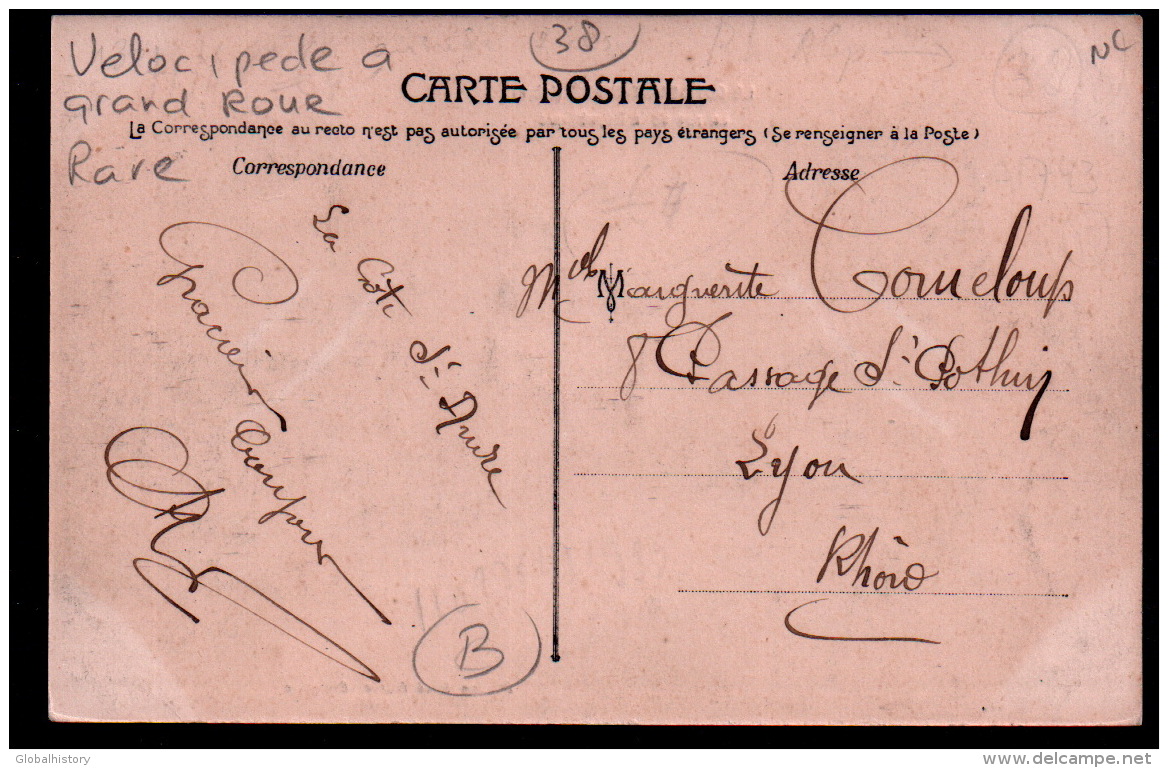 Velocipede a
grand Roue
Rare
38
NC
CARTE POSTALE
La Correspondance au recto n'est pas autorisée par tous les pays étrangers (Se renseigner à la Poste)
Correspondance
La Côte St André
Gracieux
Bonjour
B
Adresse
Melle Marguerite Corneloup
8 Passage St Pothin
Lyon
Rhône
Globalhistory
delcampe.net